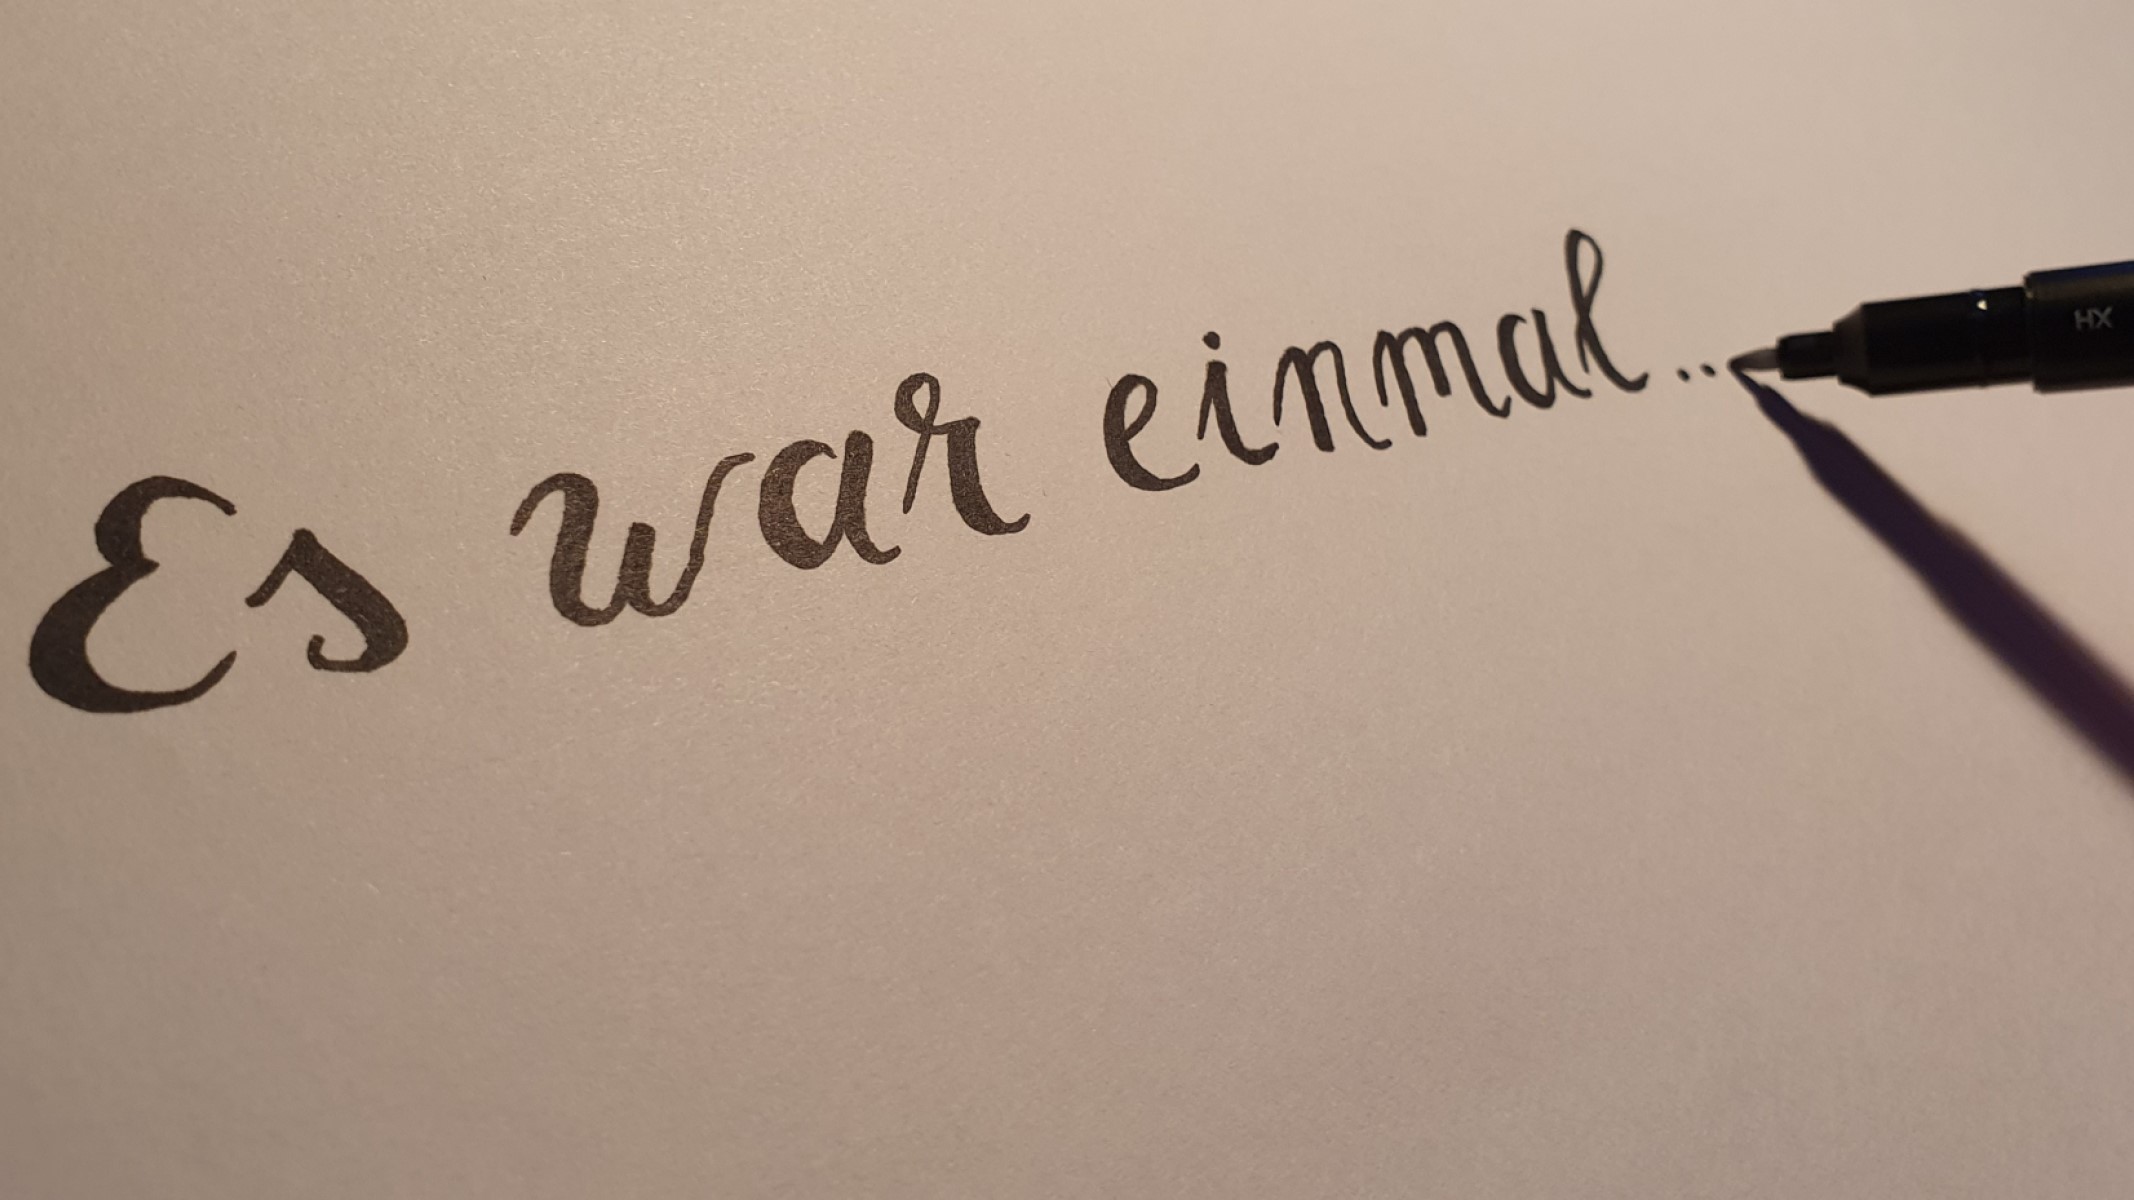 Es war einmal..
HX